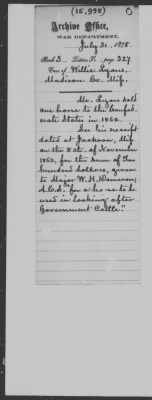 (15,998)
Archive Office,
WAR DEPARTMENT,
July 31, 1878.
Book 3 Letter L, page 327
Case of Willis Lyons,
Madison Co. Miss.
Mr. Lyons sold
one horse to the Confed-
erate States in 1862.
See his receipt
dated at Jackson, Miss
on the 8th of November
1862, for the sum of two
hundred dollars, given
to Major W. H. Dameron,
A.C.S. "for a horse to be
used in looking after
Government Cattle."